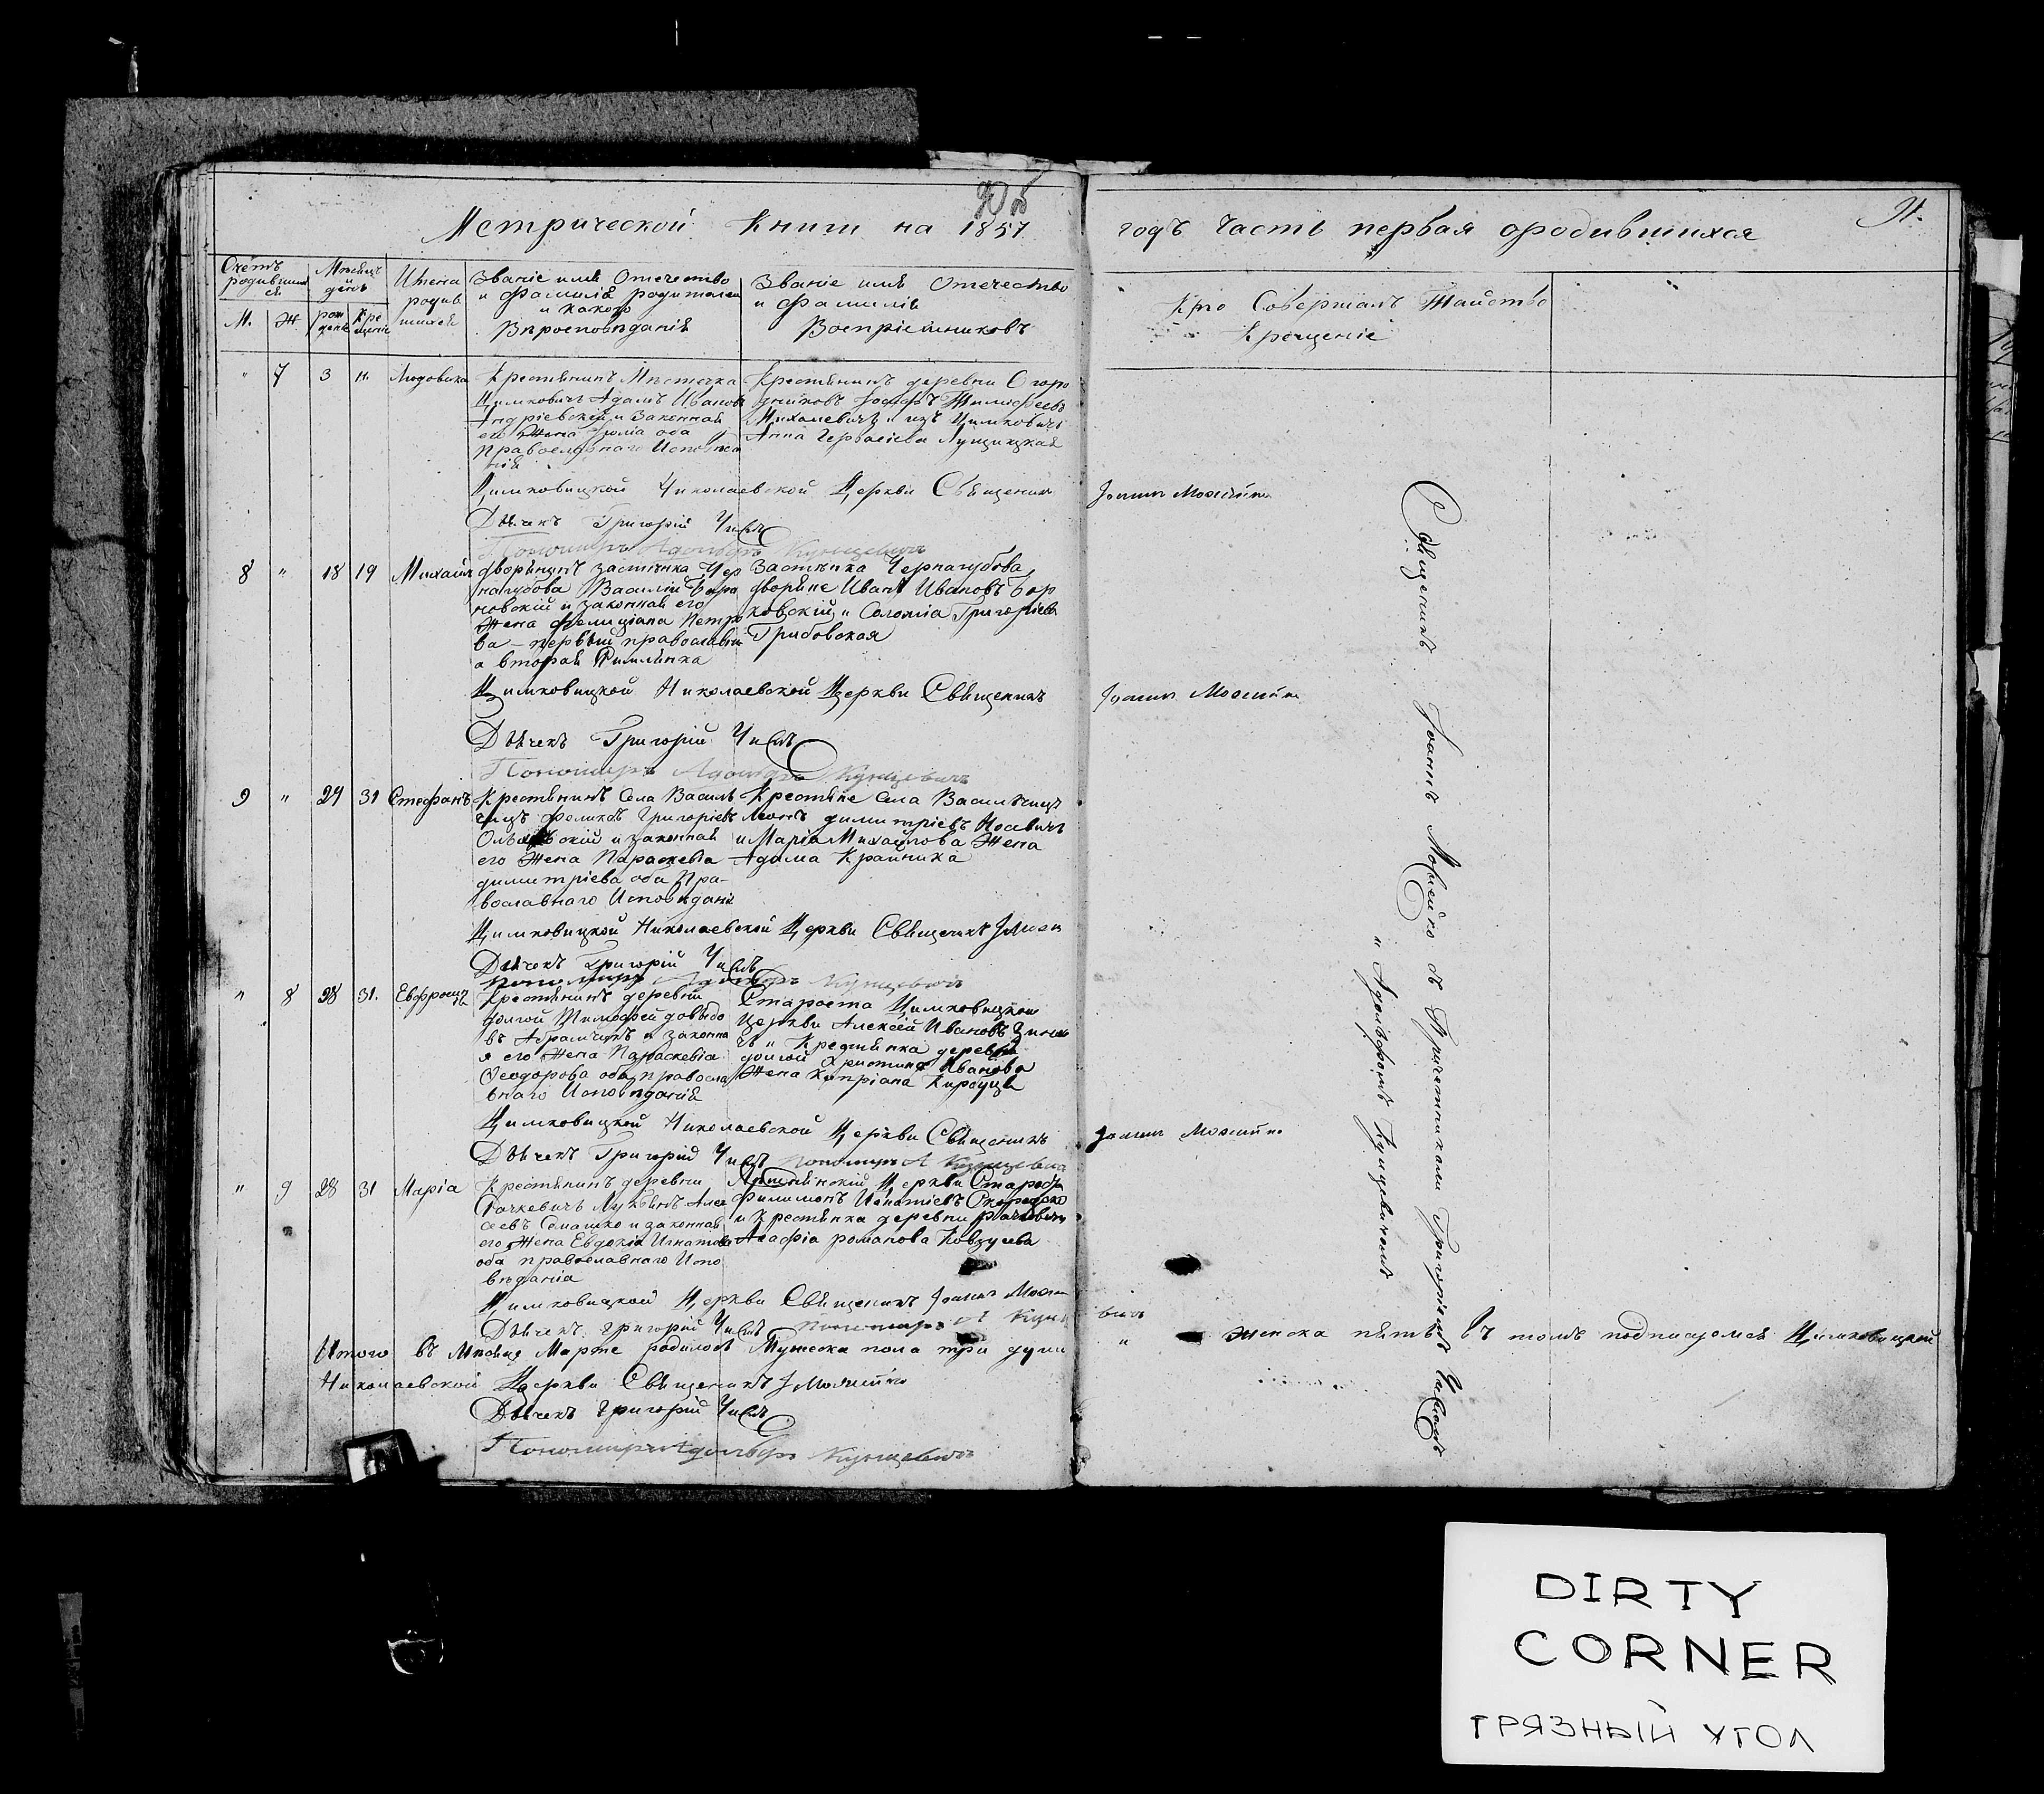 Метрической Книги на 1857 годъ часть первая ородившихся
91.
Счётъ родившихся
Мѣсяцъ и день
Имена родившихся
Званіе имя Отечество и Фамилія родителей и какого Вѣроисповѣданія
Званіе имя Отечество и Фамилія Воспріемниковъ
Кто Совершалъ Таинство Крещеніе
М.
Ж
рождение
Крещение
" 7 3 11. Людовика
Крестьянинъ Мѣстечка
Цимковичъ Адамъ Ивановъ
Андріевскій и Законная
его Жена оба
Православнаго Исповѣда
нія
Крестьянинъ деревни Огоро
дниковъ Іосифъ Тимофеевъ
Михалевичъ и изъ Цимковичъ
Анна Лущицкая
Цимковицкой Николаевской Церкви Священикъ Іоаннъ Мосѣйко
Дьячекъ Григорій
Пономаръ Адольфъ Куницевичъ
8 " 18 19 Михаилъ
дворянинъ застѣнка Чер
нагубова Василій
новскій и законная его
Жена Фелиціана Петро
ва – первый православный
а вторая Римлянка
Застѣнка Чернагубова
дворяне Иванъ Ивановъ Бор
ковскій и Соломіа Григоріева
Грибовская
Цимковицкой Николаевской Церкви Священикъ Іоаннъ Мосѣйко
Дьячекъ Григорій
Пономаръ Адольфъ Куницевичъ
9 " 27 31 Стефанъ
Крестьянинъ Села Василь
чицъ Феликсъ Григоріевъ
и законная
его Жена Параскева
димитріева оба Пра-
вославнаго Исповѣданія
Крестьяне Села Васильчицъ
димитріевъ
и Марія Михайлова Жена
Адама Крайника
Цимковицкой Николаевской Церкви Священикъ
Дьячекъ Григорій
Пономаръ Адольфъ Куницевичъ
" 8 28 31. Евфросинія
Крестьянинъ деревни
долгой Тимофей довыдо
въ Абрамчикъ и законна
я его Жена Параскевіа
Феодорова оба правосла
внаго Исповѣданія
Староста Цимковицкой
Церкви Алексѣй Ивановъ
и Крестьянка деревни
долгой Христина Иванова
Жена Кипріана
Цимковицкой Николаевской Церкви Священикъ Іоаннъ Мосѣйко
Дьячекъ Григорій Пономаръ А Куницевичъ
" 9 28 31 Маріа
Крестьянинъ деревни
Рачкевичъ Лукьянъ Алек
сеевъ Семашко и законная
его Жена Евдокіа Игнатова
оба православнаго Испо
вѣданіа
Церкви Староста
Филимонъ Игнатіевъ
и Крестьянка деревни Рачкевичъ
Агафіа романова
Цимковицкой Церкви Священикъ Іоаннъ
Дьячекъ Григорій Пономаръ А
Итого въ Мѣсяцѣ Марте родилось Мужеска пола три души " женска пять въ томъ подписуемся Цимковицкой
Николаевской Церкви Священикъ І Мосѣйко
Дьячекъ Григорій
Пономаръ Адольфъ Куницевичъ
Священикъ Іоаннъ Мосѣйко съ Причетниками Григоріемъ
" Адольфомъ Куницевичемъ
DIRTY
CORNER
ГРЯЗНЫЙ УГОЛ